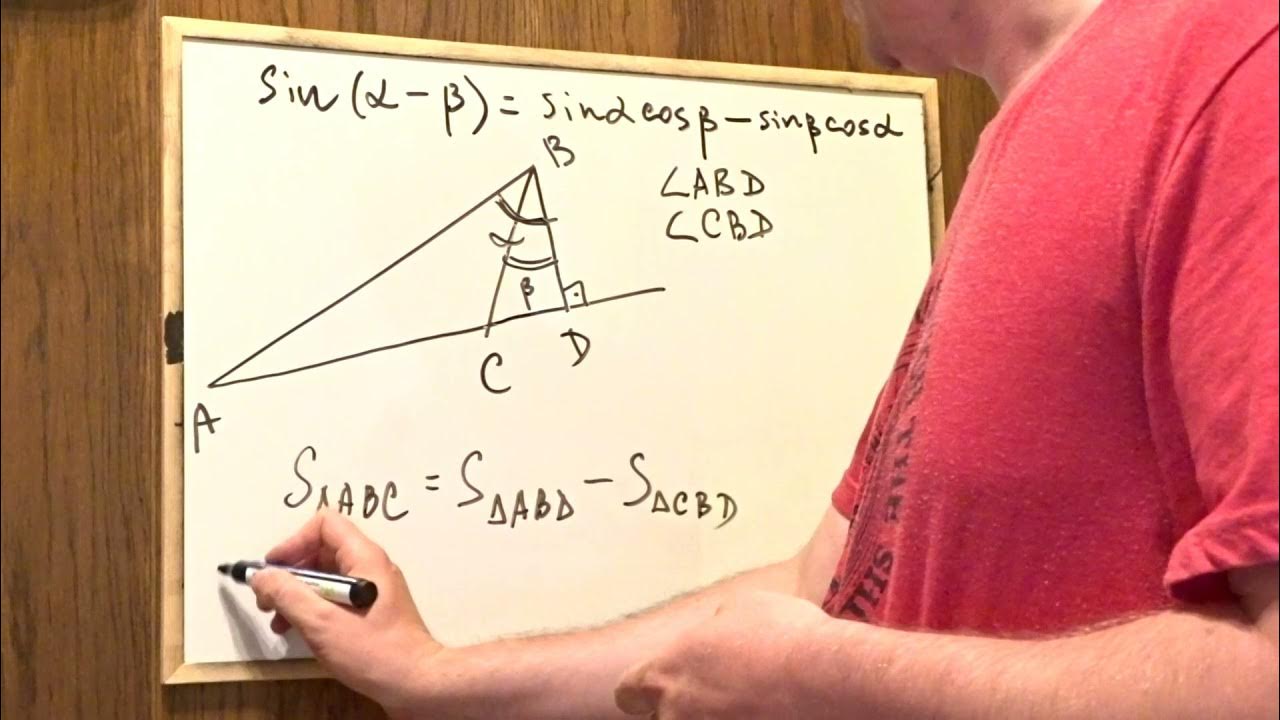 sin(α-β)=sinαcosβ-sinβcosα
B
∠ABD
∠CBD
α
β
D
C
A
S△ABC = S△ABD - S△CBD